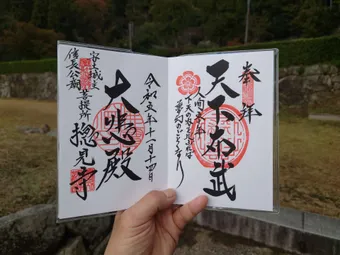 奉拝
天下布武
人間五十年
下天の内をくらぶれば
夢幻のごとくなり
令和五年十一月十四日
大悲殿
安土城主
信長公菩提所
摠見寺